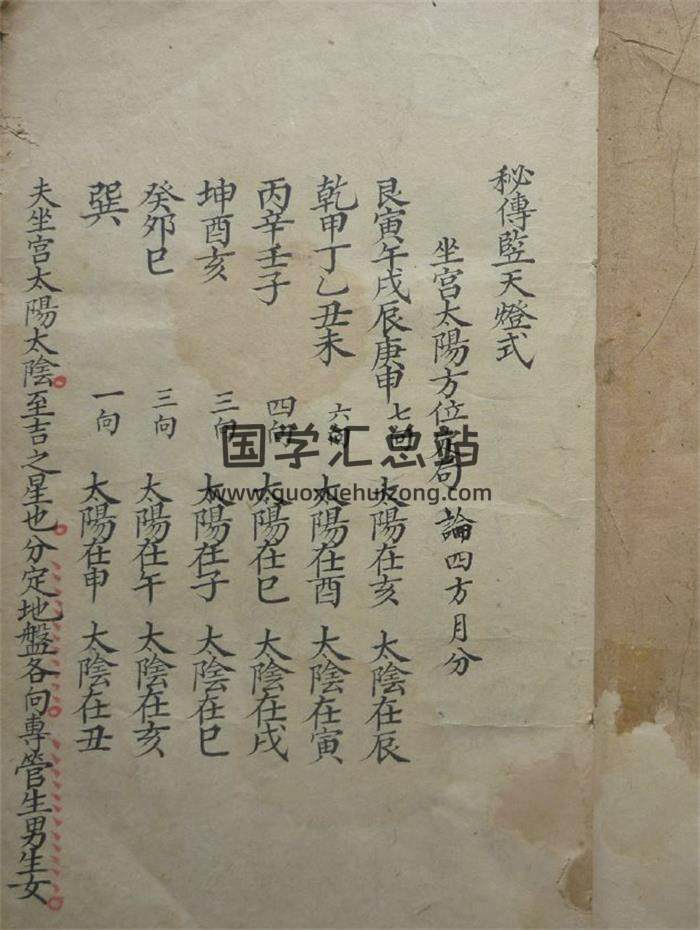 秘傳竪天燈式
坐宮太陽方位定局 論四方月分
艮寅午戌辰庚申 七向 太陽在亥 太陰在辰
乾甲丁乙丑未 六向 太陽在酉 太陰在寅
丙辛壬子 四向 太陽在巳 太陰在戌
坤酉亥 三向 太陽在子 太陰在巳
癸卯巳 三向 太陽在午 太陰在亥
巽 一向 太陽在申 太陰在丑
夫坐宮太陽太陰。至吉之星也。分定地盤各向。專管生男生女。
国学汇总站
www.guoxuehuizong.com